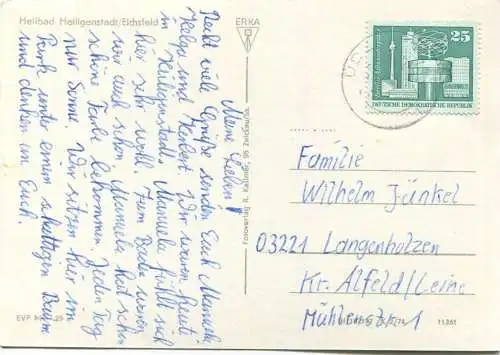 Heilbad Heiligenstadt/Eichsfeld
ERKA
Meine Lieben!
Recht viele Grüße senden Euch Manuela
Helga und Herbert. Wir waren heute
in Heiligenstadt. Manuela fühlt sich
hier sehr wohl. Zum Baden waren
wir auch schon. Manuela hat schon
schöne Farbe bekommen. Jeden Tag
nur Sonne. Wir sitzen hier im
Park unter einem schattigen Baum
und denken an Euch.
Fotoverlag R. Kallmer, 95 Zwickau
25
DEUTSCHE DEMOKRATISCHE REPUBLIK
Familie
Wilhelm Jünkel
03221 Langenholzen
Kr. Alfeld/Leine
Mühlenstr. 1
EVP